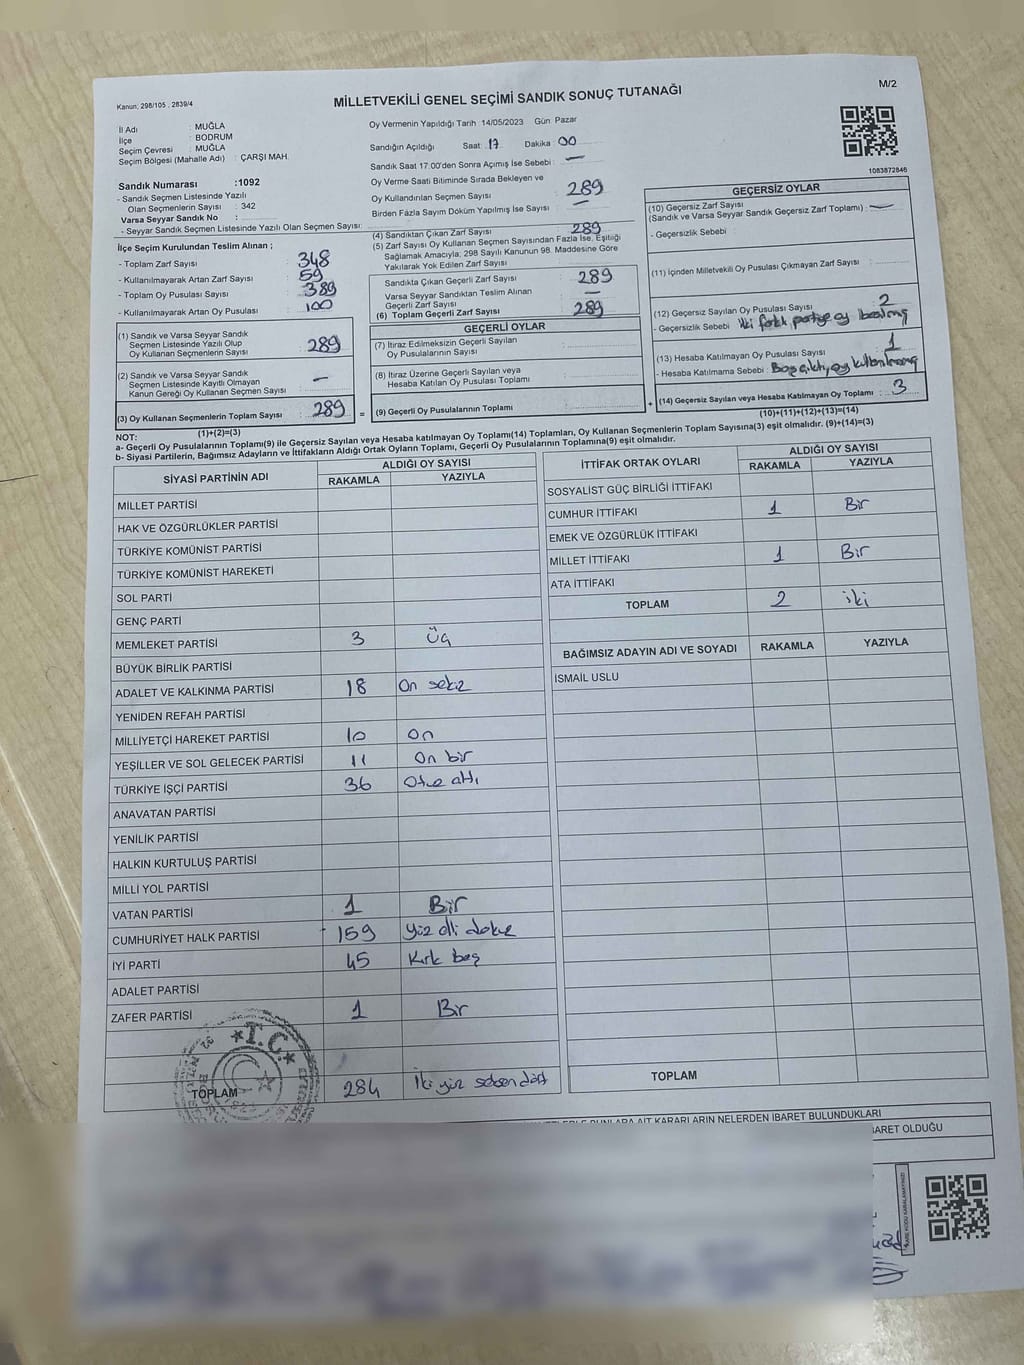 Kanun; 298/105 , 2839/4
MİLLETVEKİLİ GENEL SEÇİMİ SANDIK SONUÇ TUTANAĞI
M/2
İl Adı : MUĞLA
İlçe : BODRUM
Seçim Çevresi : MUĞLA
Seçim Bölgesi (Mahalle Adı) : ÇARŞI MAH.
Sandık Numarası :1092
- Sandık Seçmen Listesinde Yazılı
Olan Seçmenlerin Sayısı : 342
Varsa Seyyar Sandık No :
- Seyyar Sandık Seçmen Listesinde Yazılı Olan Seçmen Sayısı:
İlçe Seçim Kurulundan Teslim Alınan ;
- Toplam Zarf Sayısı : 348
- Kullanılmayarak Artan Zarf Sayısı : 59
- Toplam Oy Pusulası Sayısı : 389
- Kullanılmayarak Artan Oy Pusulası : 100
(1) Sandık ve Varsa Seyyar Sandık
Seçmen Listesinde Yazılı Olup
Oy Kullanan Seçmenlerin Sayısı : 289
(2) Sandık ve Varsa Seyyar Sandık
Seçmen Listesinde Kayıtlı Olmayan
Kanun Gereği Oy Kullanan Seçmen Sayısı : —
(3) Oy Kullanan Seçmenlerin Toplam Sayısı : 289
(1)+(2)=(3)
Oy Vermenin Yapıldığı Tarih :14/05/2023 Gün: Pazar
Sandığın Açıldığı Saat : 17 Dakika : 00
Sandık Saat 17:00'den Sonra Açımış İse Sebebi : —
Oy Verme Saati Bitiminde Sırada Bekleyen ve
Oy Kullandırılan Seçmen Sayısı : 289
Birden Fazla Sayım Döküm Yapılmış İse Sayısı : —
(4) Sandıktan Çıkan Zarf Sayısı : 289
(5) Zarf Sayısı Oy Kullanan Seçmen Sayısından Fazla İse, Eşitliği
Sağlamak Amacıyla; 298 Sayılı Kanunun 98. Maddesine Göre
Yakılarak Yok Edilen Zarf Sayısı :
Sandıkta Çıkan Geçerli Zarf Sayısı : 289
Varsa Seyyar Sandıktan Teslim Alınan
Geçerli Zarf Sayısı : —
(6) Toplam Geçerli Zarf Sayısı : 289
GEÇERLİ OYLAR
(7) İtiraz Edilmeksizin Geçerli Sayılan
Oy Pusulalarının Sayısı :
(8) İtiraz Üzerine Geçerli Sayılan veya
Hesaba Katılan Oy Pusulası Toplamı :
= (9) Geçerli Oy Pusulalarının Toplamı :
1083872846
GEÇERSİZ OYLAR
(10) Geçersiz Zarf Sayısı
(Sandık ve Varsa Seyyar Sandık Geçersiz Zarf Toplamı) : —
- Geçersizlik Sebebi :
(11) İçinden Milletvekili Oy Pusulası Çıkmayan Zarf Sayısı :
(12) Geçersiz Sayılan Oy Pusulası Sayısı : 2
- Geçersizlik Sebebi : iki farklı partiye oy basılmış
(13) Hesaba Katılmayan Oy Pusulası Sayısı : 1
- Hesaba Katılmama Sebebi : Boş çıktı, oy kullanılmamış
+ (14) Geçersiz Sayılan veya Hesaba Katılmayan Oy Toplamı : 3
(10)+(11)+(12)+(13)=(14)
NOT:
a- Geçerli Oy Pusulalarının Toplamı(9) ile Geçersiz Sayılan veya Hesaba katılmayan Oy Toplamı(14) Toplamları, Oy Kullanan Seçmenlerin Toplam Sayısına(3) eşit olmalıdır. (9)+(14)=(3)
b- Siyasi Partilerin, Bağımsız Adayların ve İttifakların Aldığı Ortak Oyların Toplamı, Geçerli Oy Pusulalarının Toplamına(9) eşit olmalıdır.
SİYASİ PARTİNİN ADI ALDIĞI OY SAYISI
RAKAMLA YAZIYLA
MİLLET PARTİSİ
HAK VE ÖZGÜRLÜKLER PARTİSİ
TÜRKİYE KOMÜNİST PARTİSİ
TÜRKİYE KOMÜNİST HAREKETİ
SOL PARTİ
GENÇ PARTİ
MEMLEKET PARTİSİ 3 Üç
BÜYÜK BİRLİK PARTİSİ
ADALET VE KALKINMA PARTİSİ 18 On sekiz
YENİDEN REFAH PARTİSİ
MİLLİYETÇİ HAREKET PARTİSİ 10 On
YEŞİLLER VE SOL GELECEK PARTİSİ 11 On bir
TÜRKİYE İŞÇİ PARTİSİ 36 Otuz altı
ANAVATAN PARTİSİ
YENİLİK PARTİSİ
HALKIN KURTULUŞ PARTİSİ
MİLLİ YOL PARTİSİ
VATAN PARTİSİ 1 Bir
CUMHURİYET HALK PARTİSİ 159 Yüz elli dokuz
İYİ PARTİ 45 Kırk beş
ADALET PARTİSİ
ZAFER PARTİSİ 1 Bir
T.C.
TOPLAM 284 İki yüz seksen dört
İTTİFAK ORTAK OYLARI ALDIĞI OY SAYISI
RAKAMLA YAZIYLA
SOSYALİST GÜÇ BİRLİĞİ İTTİFAKI
CUMHUR İTTİFAKI 1 Bir
EMEK VE ÖZGÜRLÜK İTTİFAKI
MİLLET İTTİFAKI 1 Bir
ATA İTTİFAKI
TOPLAM 2 iki
BAĞIMSIZ ADAYIN ADI VE SOYADI RAKAMLA YAZIYLA
İSMAİL USLU
TOPLAM
BUNLARA AİT KARARLARIN NELERDEN İBARET BULUNDUKLARI
İBARET OLDUĞU